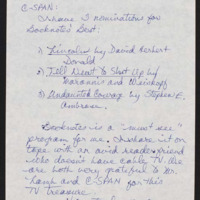 C-SPAN:
3 nominations for
Booknotes Best.
1) Lincoln by David Herbert
Donald
2) Tell Newt to Shut Up by
Maraniss and Weisskopf
3) Undaunted Courage by Stephen E.
Ambrose.
Booknotes is a "must see"
program for me. I share it on
tape with an avid reader friend
who doesn't have cable TV. We
are both very grateful to Mr.
Lamb and C-SPAN for this
TV treasure.